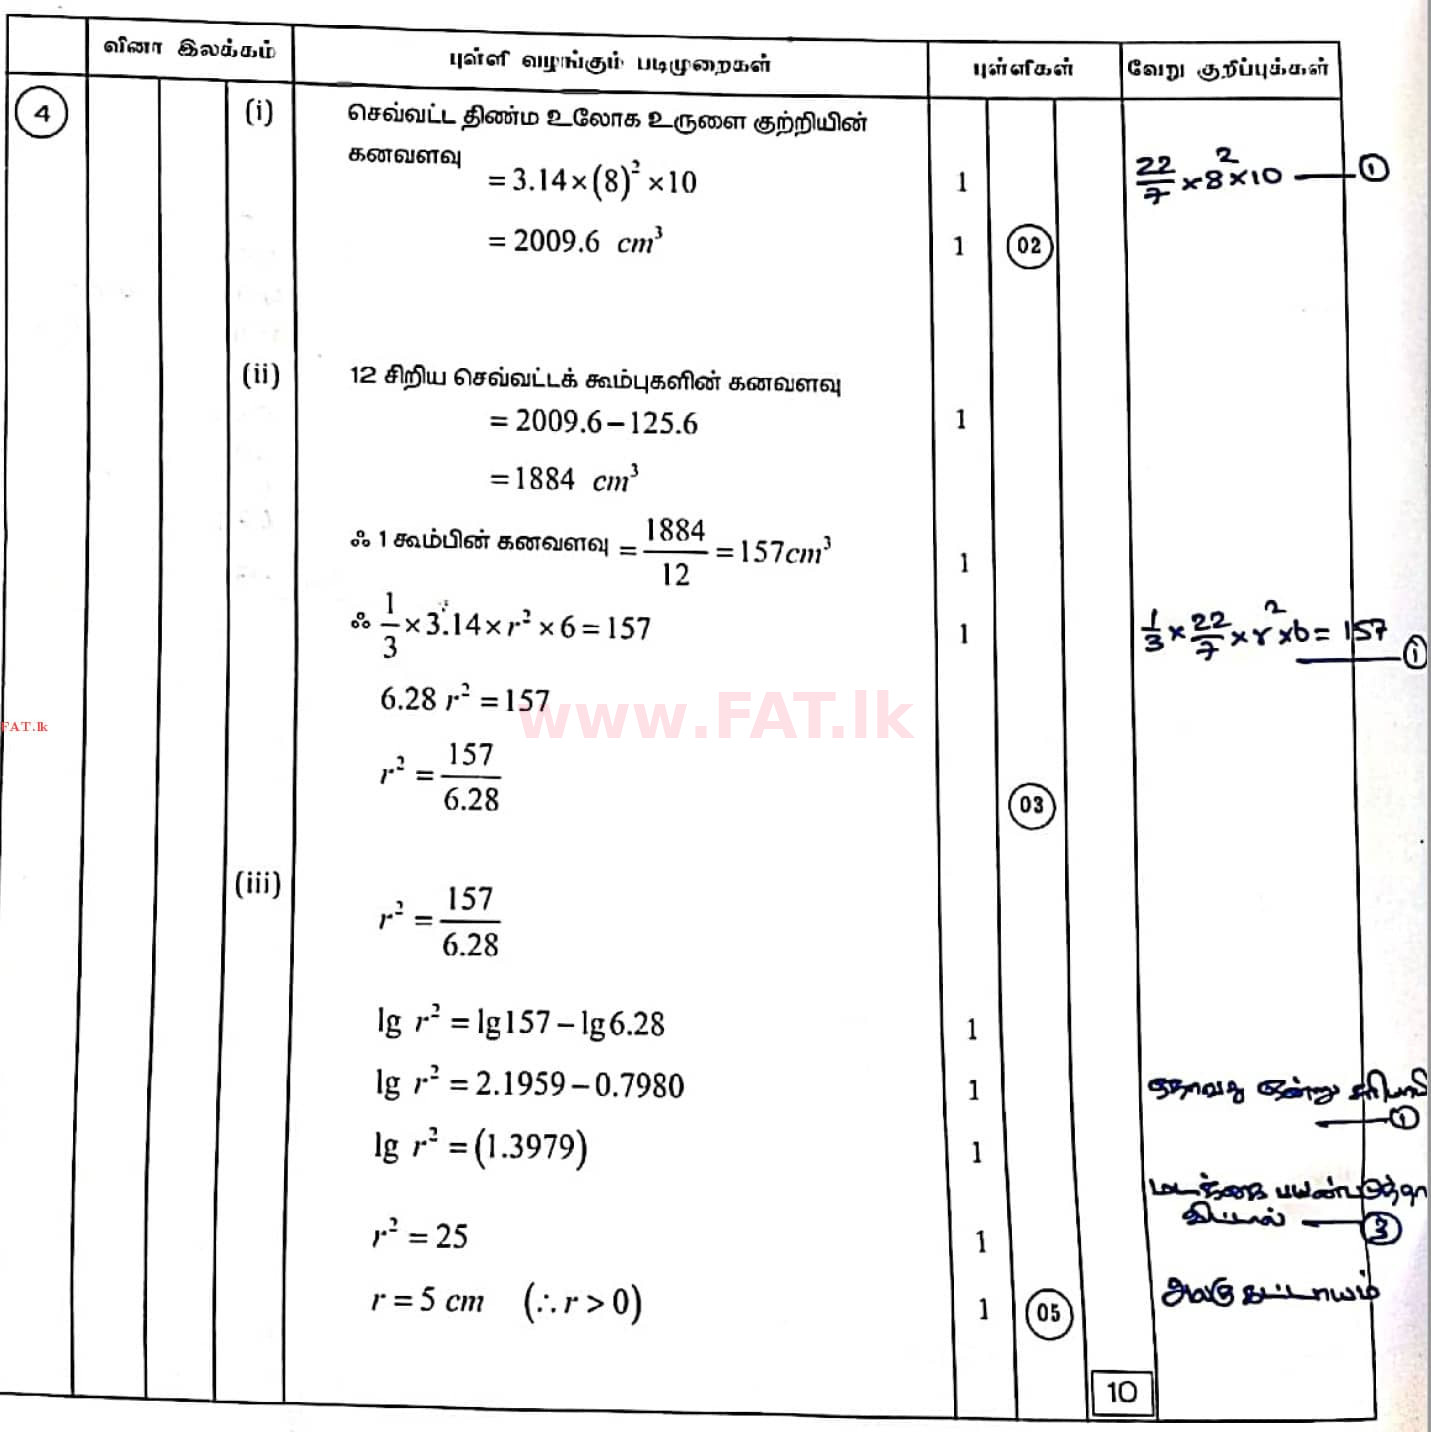 வினா இலக்கம் புள்ளி வழங்கும் படிமுறைகள் புள்ளிகள் வேறு குறிப்புக்கள்
4 (i) செவ்வட்ட திண்ம உலோக உருளை குற்றியின்
கனவளவு
= 3.14 × (8)² × 10 1 22/7 × 8² × 10 — 1
= 2009.6 cm³ 1 02
(ii) 12 சிறிய செவ்வட்டக் கூம்புகளின் கனவளவு
= 2009.6 – 125.6 1
= 1884 cm³
ஃ 1 கூம்பின் கனவளவு = 1884/12 = 157cm³ 1
ஃ 1/3 × 3.14 × r² × 6 = 157 1 1/3 × 22/7 × r² × 6 = 157 — 1
6.28 r² = 157
www.FAT.lk
FAT.lk
r² = 157/6.28
03
(iii)
r² = 157/6.28
lg r² = lg157 – lg6.28 1
lg r² = 2.1959 – 0.7980 1 ஏதாவது ஒன்று
— 1
lg r² = (1.3979) 1
மடக்கை
— 3
r² = 25 1
r = 5 cm (∴ r > 0) 1 05 அலகு கட்டாயம்
10